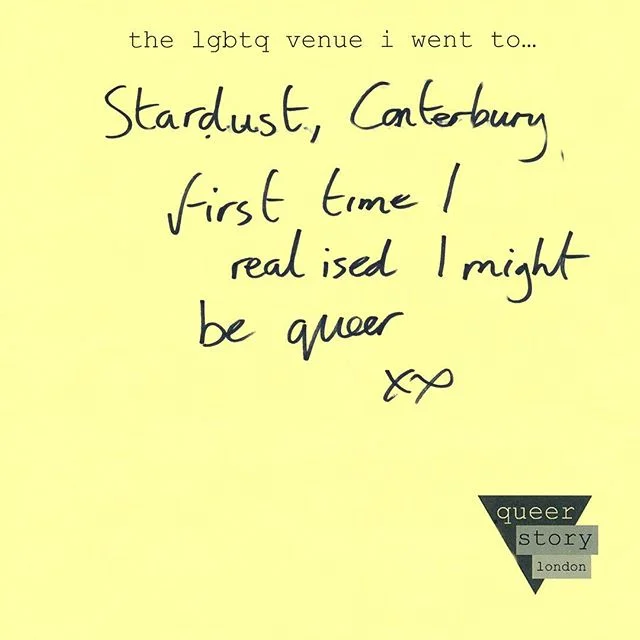 the lgbtq venue i went to…
Stardust, Canterbury
first time I
realised I might
be queer
xx
queer
story
london